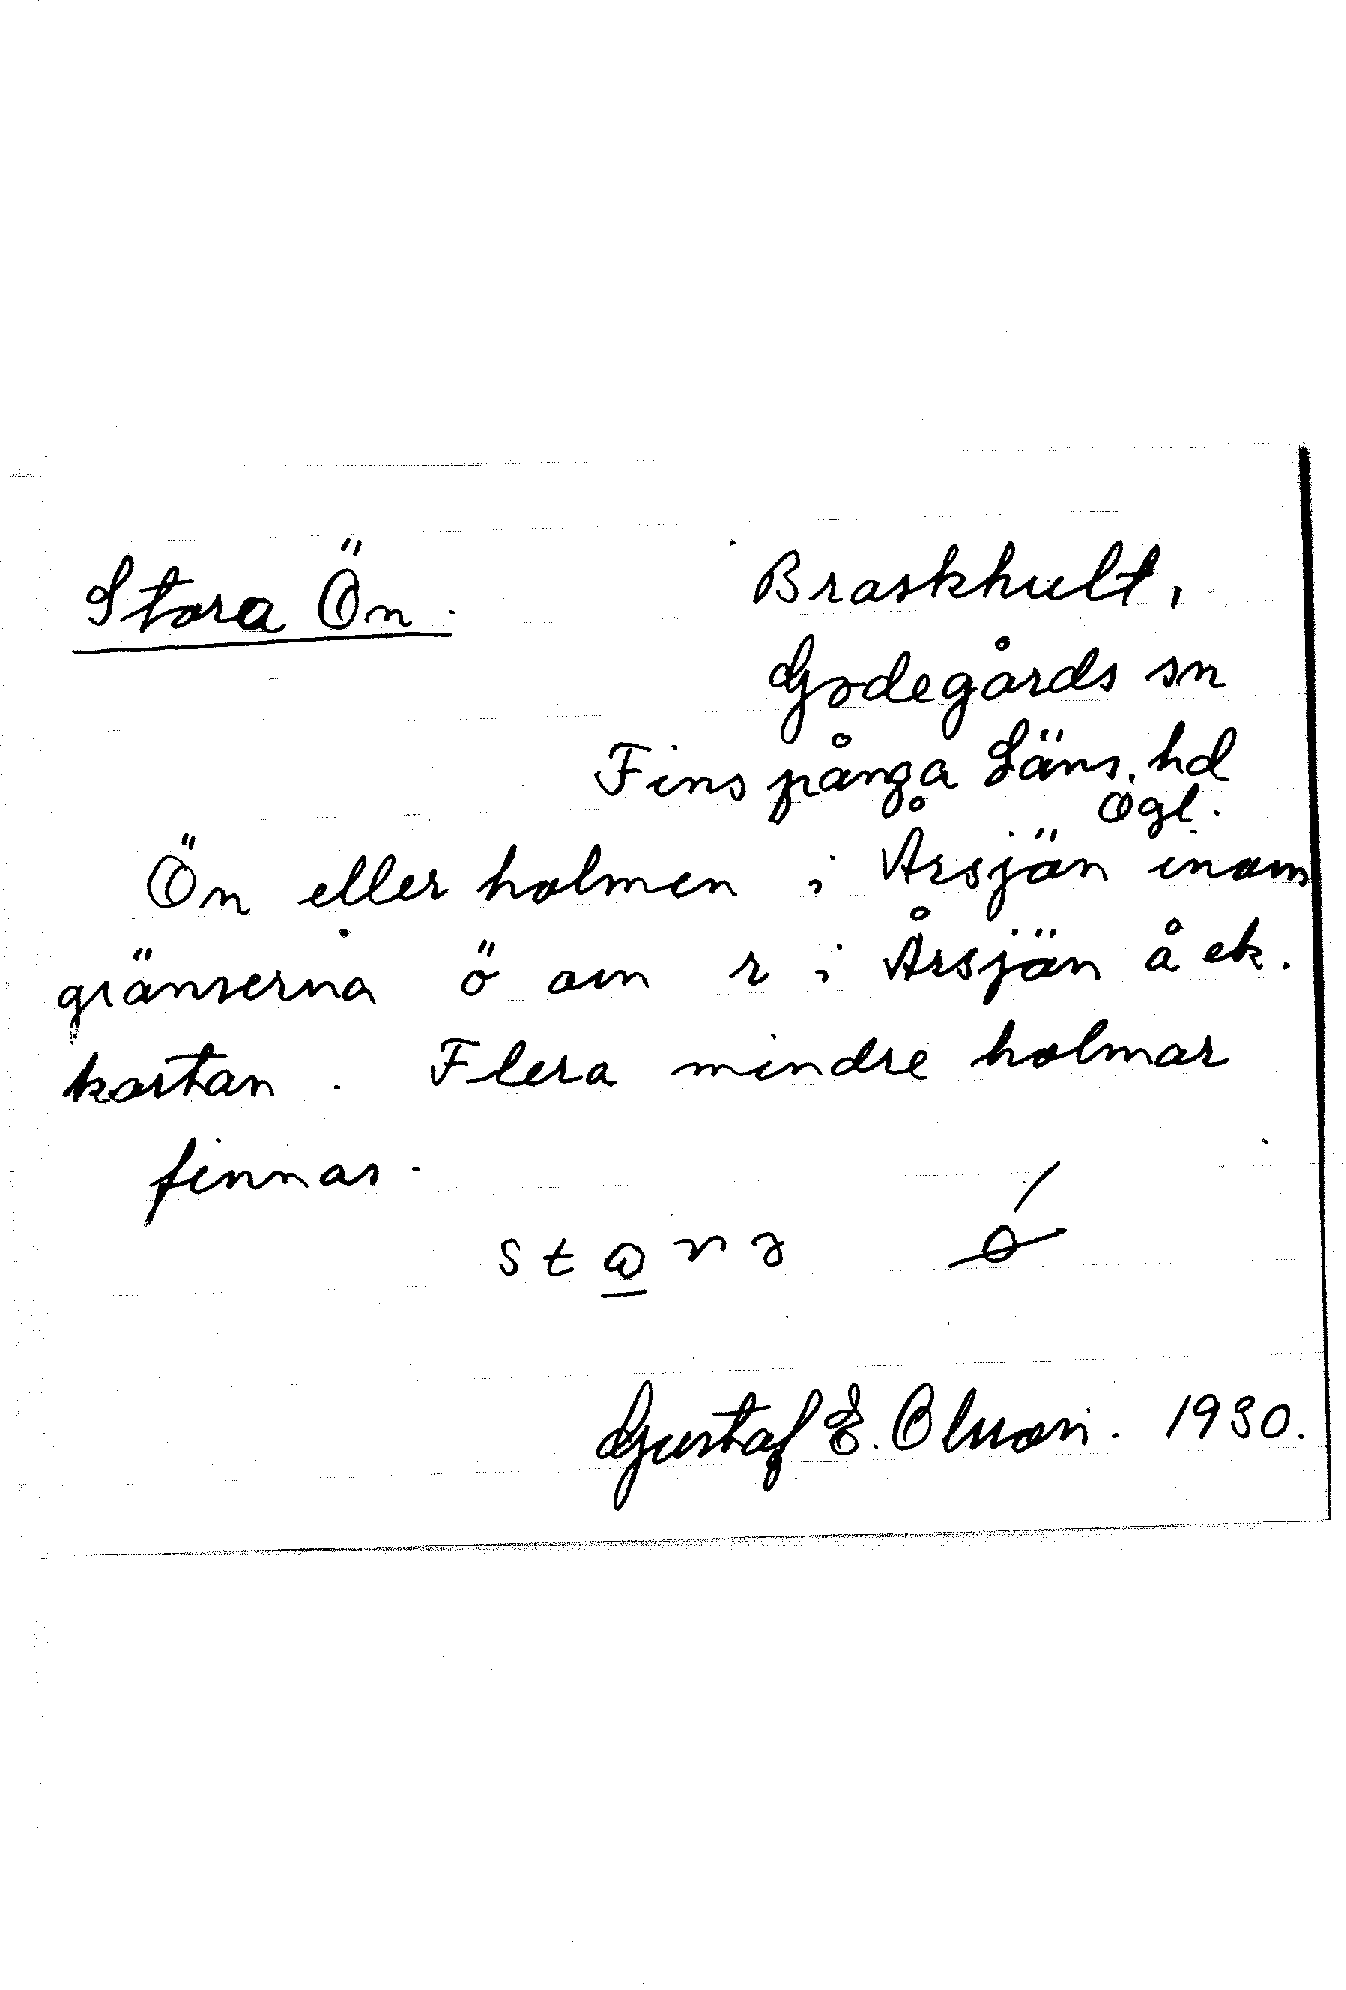 Stora Ön.
Braskhult,
Godegårds sn
Finspånga Läns. hd
Ögl.
Ön eller holmen i Årsjön inom
gränserna ö om r i Årsjön å ek.
kartan. Flera mindre holmar
finnas.
Gustaf E. Olsson. 1930.